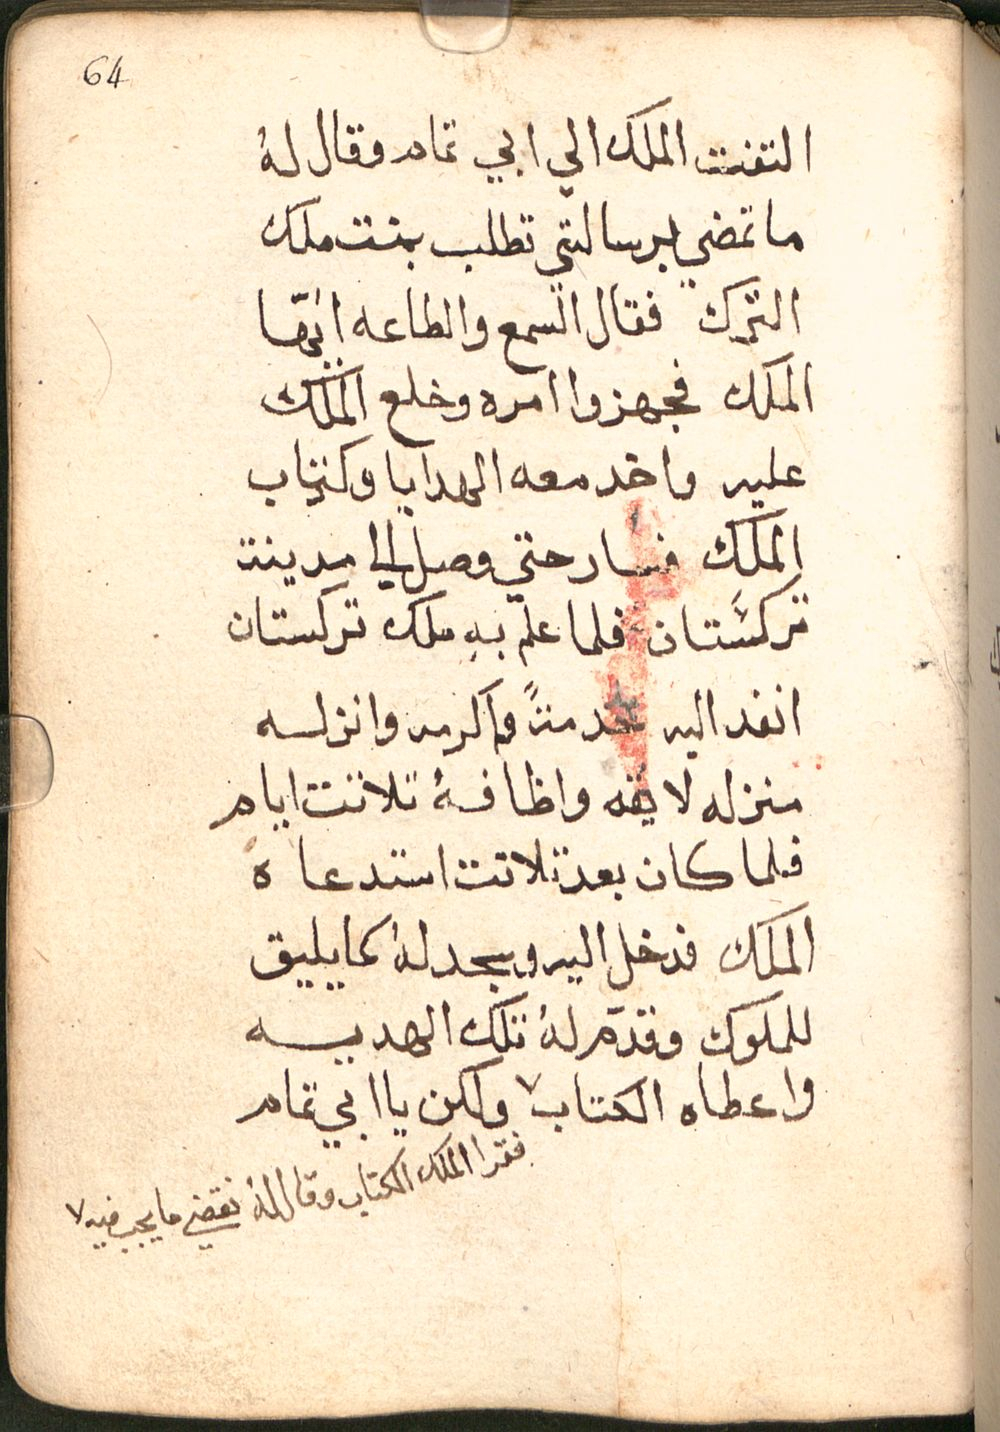 64
التفتت الملك الي ابي تمام وقال لهُ
ما تمضي برسالتي تطلب بنت ملك
الترك فقال السمع والطاعه ايّها
الملك فجهزوا امره وخلع الملك
عليه واخد معه الهدايا وكتاب
الملك فسار حتي وصل الي مدينة
تركستان فلما علم بهِ ملك تركستان
انفد اليه خدمتةً واكرمه وانزله
منزله لايقه واظافهُ تلاتت ايام
فلما كان بعد تلاتت استدعاه
الملك فدخل اليه وسجد لهُ كما يليق
للملوك وقدّم لهُ تلك الهديه
واعطاه الكتاب ٧ ولكن يا ابي تمام
فقرا الملك الكتاب وقال لهُ نقضي ما يجب فيه ٧